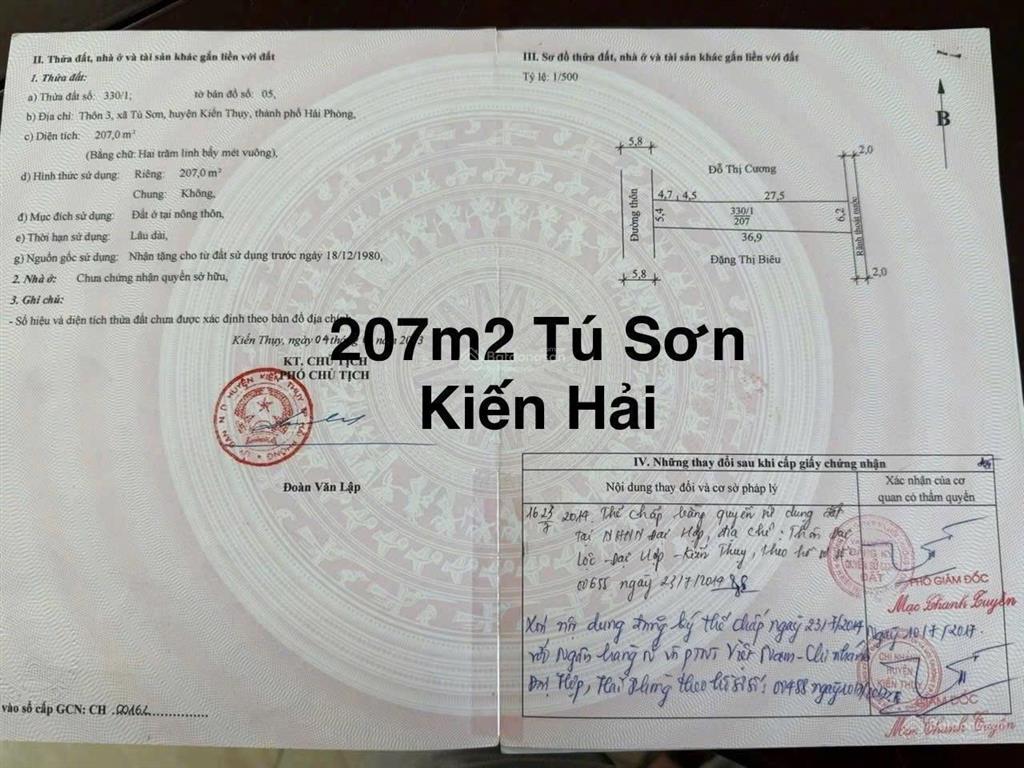 II. Thửa đất, nhà ở và tài sản khác gắn liền với đất
1. Thửa đất:
a) Thửa đất số: 330/1; tờ bản đồ số: 05,
b) Địa chỉ: Thôn 3, xã Tú Sơn, huyện Kiến Thụy, thành phố Hải Phòng,
c) Diện tích: 207,0 m²
(Bằng chữ: Hai trăm linh bẩy mét vuông),
d) Hình thức sử dụng: Riêng: 207,0 m²
Chung: Không,
đ) Mục đích sử dụng: Đất ở tại nông thôn,
e) Thời hạn sử dụng: Lâu dài,
g) Nguồn gốc sử dụng: Nhận tặng cho từ đất sử dụng trước ngày 18/12/1980,
2. Nhà ở: Chưa chứng nhận quyền sở hữu,
3. Ghi chú:
- Số hiệu và diện tích thửa đất chưa được xác định theo bản đồ địa chính
Kiến Thụy, ngày 04 tháng
KT. CHỦ TỊCH
PHÓ CHỦ TỊCH
Đoàn Văn Lập
vào sổ cấp GCN: CH
III. Sơ đồ thửa đất, nhà ở và tài sản khác gắn liền với đất
Tỷ lệ: 1/500
B
5,8
2,0
Đỗ Thị Cương
4,7 4,5 27,5
Đường thôn
5,4
330/1
207
6,2
Rãnh thoát nước
36,9
Đặng Thị Biêu
5,8
2,0
207m2 Tú Sơn
Kiến Hải
IV. Những thay đổi sau khi cấp giấy chứng nhận
Nội dung thay đổi và cơ sở pháp lý
Xác nhận của cơ
quan có thẩm quyền
Thế chấp bằng quyền sử dụng đất
Tại NHNN Đại Hợp, địa chỉ: Thôn Đại
Lộc - Đại Hợp - Kiến Thụy, theo hồ sơ số
00655 ngày 23/7/2014
PHÓ GIÁM ĐỐC
Mạc Thanh Tuyền
Xoá nội dung đăng ký thế chấp ngày 23/7/2014
Ngày 10/7/2017.
với Ngân hàng N và PTNT Việt Nam - Chi nhánh
Đại Hợp, Hải Phòng theo hồ sơ số: 00488 ngày
CHI NHÁNH
HUYỆN
KIẾN THỤY
GIÁM ĐỐC
Mạc Thanh Tuyền